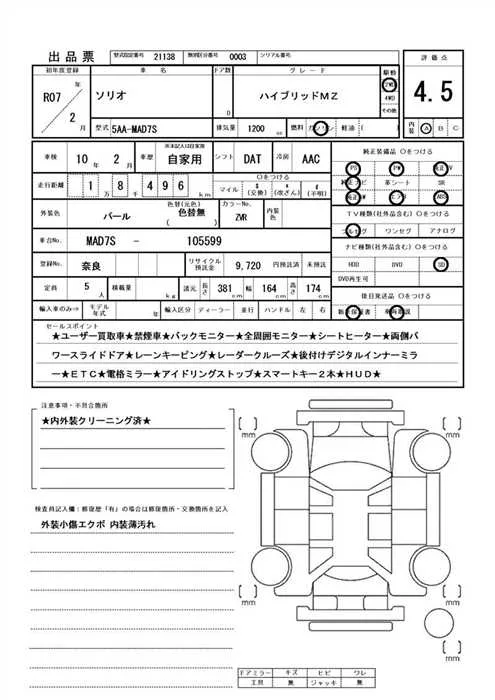 出品票 型式指定番号 21138 類別区分番号 0003 シリアル番号
評価点
初年度登録 車名 ドア数 グレード 駆動
R07 年 2 月 ソリオ D ハイブリッドMZ 2WD 4WD その他 4.5
型式 5AA-MAD7S 排気量 1200 cc 燃料 ガソリン 軽油 ( 内装 A B C
車検 10 年 2 月 車歴 ※未記入は自家用 自家用 シフト DAT 冷房 AAC
走行距離 1 万 8 千 4 9 6 km
〇をつける
マイル $ (交換) * (改ざん) # (不明)
外装色 パール 色替(元色) 色替無 カラーNo. ZVR 内装色
車台No. MAD7S - 105599
登録No. 奈良 リサイクル預託金 9,720 円預託済 未預託
定員 5 人 積載量 kg 諸元 長さ 381 cm 幅 164 cm 高さ 174 cm
輸入車のみ⇒ モデル年式 年 輸入区分 ディーラー 並行 ハンドル 左 右
純正装備品 〇をつける
PS PW 純正TV
純正ナビ 革シート SR
純正AW エアB ABS
TV種類(社外品含む) 〇をつける
フルセグ ワンセグ アナログ
ナビ種類(社外品含む) 〇をつける
HDD DVD SD
DVD再生可
後日発送品 〇をつける
新車保証書 車両取説
セールスポイント
★ユーザー買取車★禁煙車★バックモニター★全周囲モニター★シートヒーター★両側パ
ワースライドドア★レーンキーピング★レーダークルーズ★後付けデジタルインナーミラ
ー★ETC★電格ミラー★アイドリングストップ★スマートキー2本★HUD★
注意事項・不具合箇所
★内外装クリーニング済★
検査員記入欄:修復歴「有」の場合は修復箇所・交換箇所を記入
外装小傷エクボ 内装薄汚れ
[ ] mm [ ] mm
[ ] mm [ ] mm
ドアミラー キズ ヒビ ワレ
工具 無 ジャッキ 無